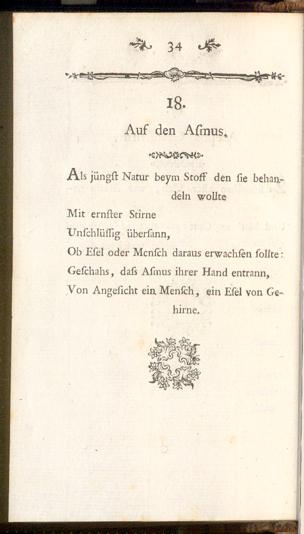 34
18.
Auf den Aſmus.
Als jüngſt Natur beym Stoff den ſie behan-
deln wollte
Mit ernſter Stirne
Unſchlüſſig überſann,
Ob Eſel oder Menſch daraus erwachſen ſollte:
Geſchahs, daſs Aſmus ihrer Hand entrann,
Von Angeſicht ein Menſch, ein Eſel von Ge-
hirne.